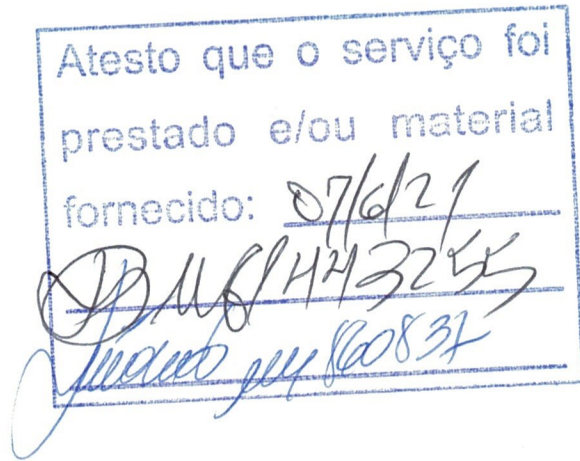 Atesto que o serviço foi
prestado e/ou material
fornecido: 07/6/21
443255
860837